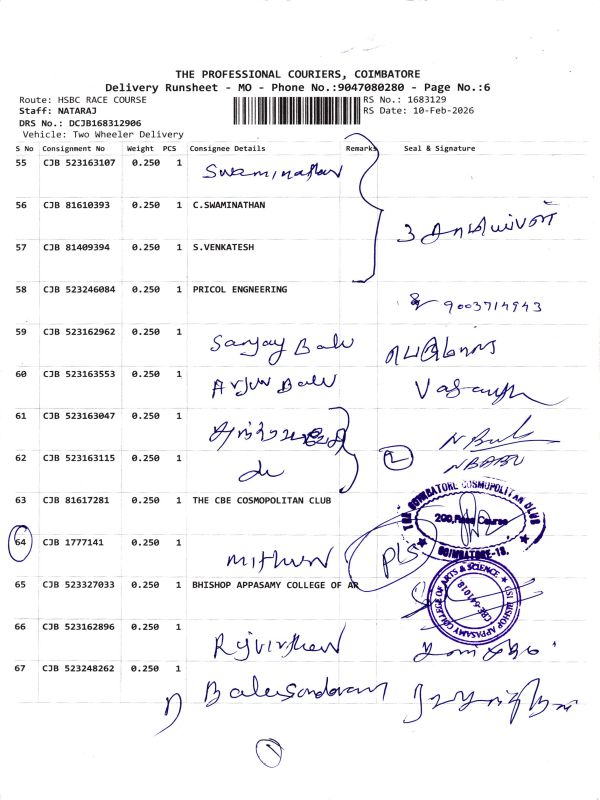 THE PROFESSIONAL COURIERS, COIMBATORE
Delivery Runsheet - MO - Phone No.:9047080280 - Page No.:6
Route: HSBC RACE COURSE
RS No.: 1683129
Staff: NATARAJ
RS Date: 10-Feb-2026
DRS No.: DCJB168312906
Vehicle: Two Wheeler Delivery
S No Consignment No Weight PCS Consignee Details Remarks Seal & Signature
55 CJB 523163107 0.250 1 Swaminathan
56 CJB 81610393 0.250 1 C.SWAMINATHAN
3
57 CJB 81409394 0.250 1 S.VENKATESH
58 CJB 523246084 0.250 1 PRICOL ENGNEERING
9003714943
59 CJB 523162962 0.250 1 Sanjay Balu
60 CJB 523163553 0.250 1 Arjun Balu Vasanth
61 CJB 523163047 0.250 1
62 CJB 523163115 0.250 1 do 2 NBABU
63 CJB 81617281 0.250 1 THE CBE COSMOPOLITAN CLUB
THE COIMBATORE COSMOPOLITAN CLUB
200, Race Course
COIMBATORE-18.
64 CJB 1777141 0.250 1 Mithun PLS
65 CJB 523327033 0.250 1 BHISHOP APPASAMY COLLEGE OF AR
BISHOP APPASAMY COLLEGE OF ARTS & SCIENCE
CBE-641018
66 CJB 523162896 0.250 1
67 CJB 523248262 0.250 1 Balasundaram